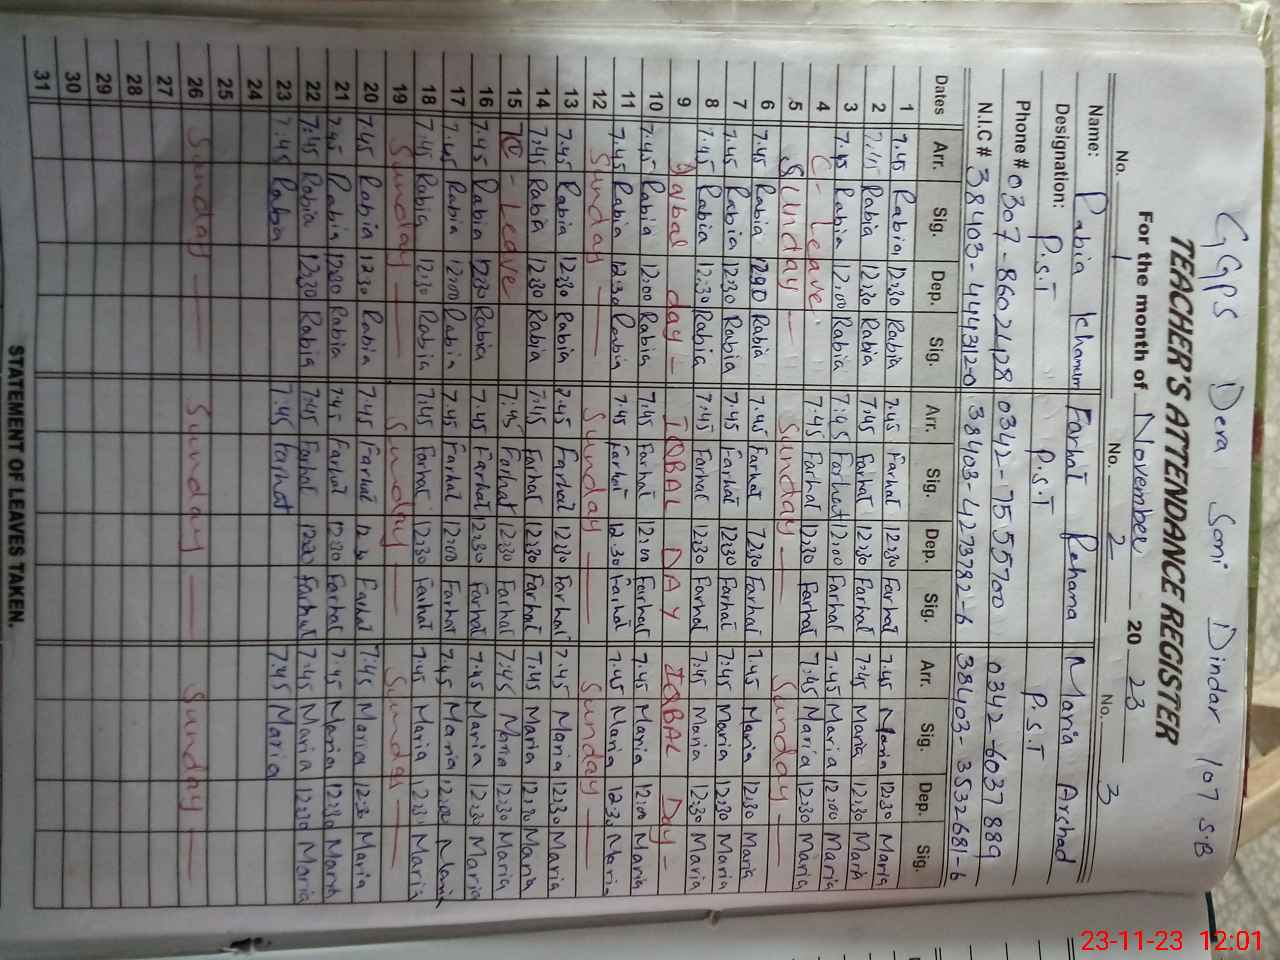 GGPS Dera Somi Dindar 107 S.B
TEACHER'S ATTENDANCE REGISTER
For the month of November 2023
No. 1 No. 2 No. 3
Name: Rabia Khanum Farhat Rehana Maria Archad
Designation: P.S.T P.S.T P.S.T
Phone # 0307-8602428 0342-7555700 0342-6037889
N.I.C # 38403-4443120 38403-4273782-6 38403-3532681-6
Dates Arr. Sig. Dep. Sig. Arr. Sig. Dep. Sig. Arr. Sig. Dep. Sig.
1 7.45 Rabia 12:30 Rabia 7.45 Farhat 12:30 Farhat 7.45 Maria 12:30 Maria
2 7:45 Rabia 12:30 Rabia 7:45 Farhat 12:30 Farhat 7:45 Maria 12:30 Maria
3 7.45 Rabia 12:00 Rabia 7:45 Farhat 12:00 Farhat 7.45 Maria 12:00 Maria
4 C - Leave 7:45 Farhat 12:30 Farhat 7:45 Maria 12:30 Maria
5 Sunday Sunday Sunday
6 7.45 Rabia Rabia 7.45 Farhat Farhat 7.45 Maria 12:30 Maria
7 7.45 Rabia 12:30 Rabia 7.45 Farhat 12:30 Farhat 7.45 Maria 12:30 Maria
8 7.45 Rabia 12:30 Rabia 7:45 Farhat 12:30 Farhat 7:45 Maria 12:30 Maria
9 Iqbal day - IQBAL DAY IQBAL Day -
10 7.45 Rabia 12:00 Rabia 7:45 Farhat 12:00 Farhat 7.45 Maria 12:00 Maria
11 7.45 Rabia 12:30 Rabia 7.45 Farhat 12:30 Farhat 7.45 Maria 12:30 Maria
12 Sunday Sunday Sunday
13 7.45 Rabia 12:30 Rabia 7.45 Farhat 12:30 Farhat 7.45 Maria 12:30 Maria
14 7:45 Rabia 12:30 Rabia 7:45 Farhat 12:30 Farhat 7:45 Maria 12:30 Maria
15 C - Leave 7:45 Farhat 12:30 Farhat 7:45 Maria 12:30 Maria
16 7.45 Rabia 12:30 Rabia 7.45 Farhat 12:30 Farhat 7.45 Maria 12:30 Maria
17 7.45 Rabia 12:00 Rabia 7.45 Farhat 12:00 Farhat 7.45 Maria 12:00 Maria
18 7:45 Rabia 12:30 Rabia 7:45 Farhat 12:30 Farhat 7:45 Maria 12:30 Maria
19 Sunday Sunday Sunday
20 7.45 Rabia 12:30 Rabia 7.45 Farhat 12:30 Farhat 7:45 Maria 12:30 Maria
21 7.45 Rabia 12:30 Rabia 7.45 Farhat 12:30 Farhat 7.45 Maria 12:30 Maria
22 7:45 Rabia 12:30 Rabia 7:45 Farhat Farhat 7:45 Maria 12:30 Maria
23 7:45 Rabia 7:45 Farhat 7:45 Maria
24
25
26 Sunday Sunday Sunday
27
28
29
30
31
STATEMENT OF LEAVES TAKEN.
23-11-23 12:01